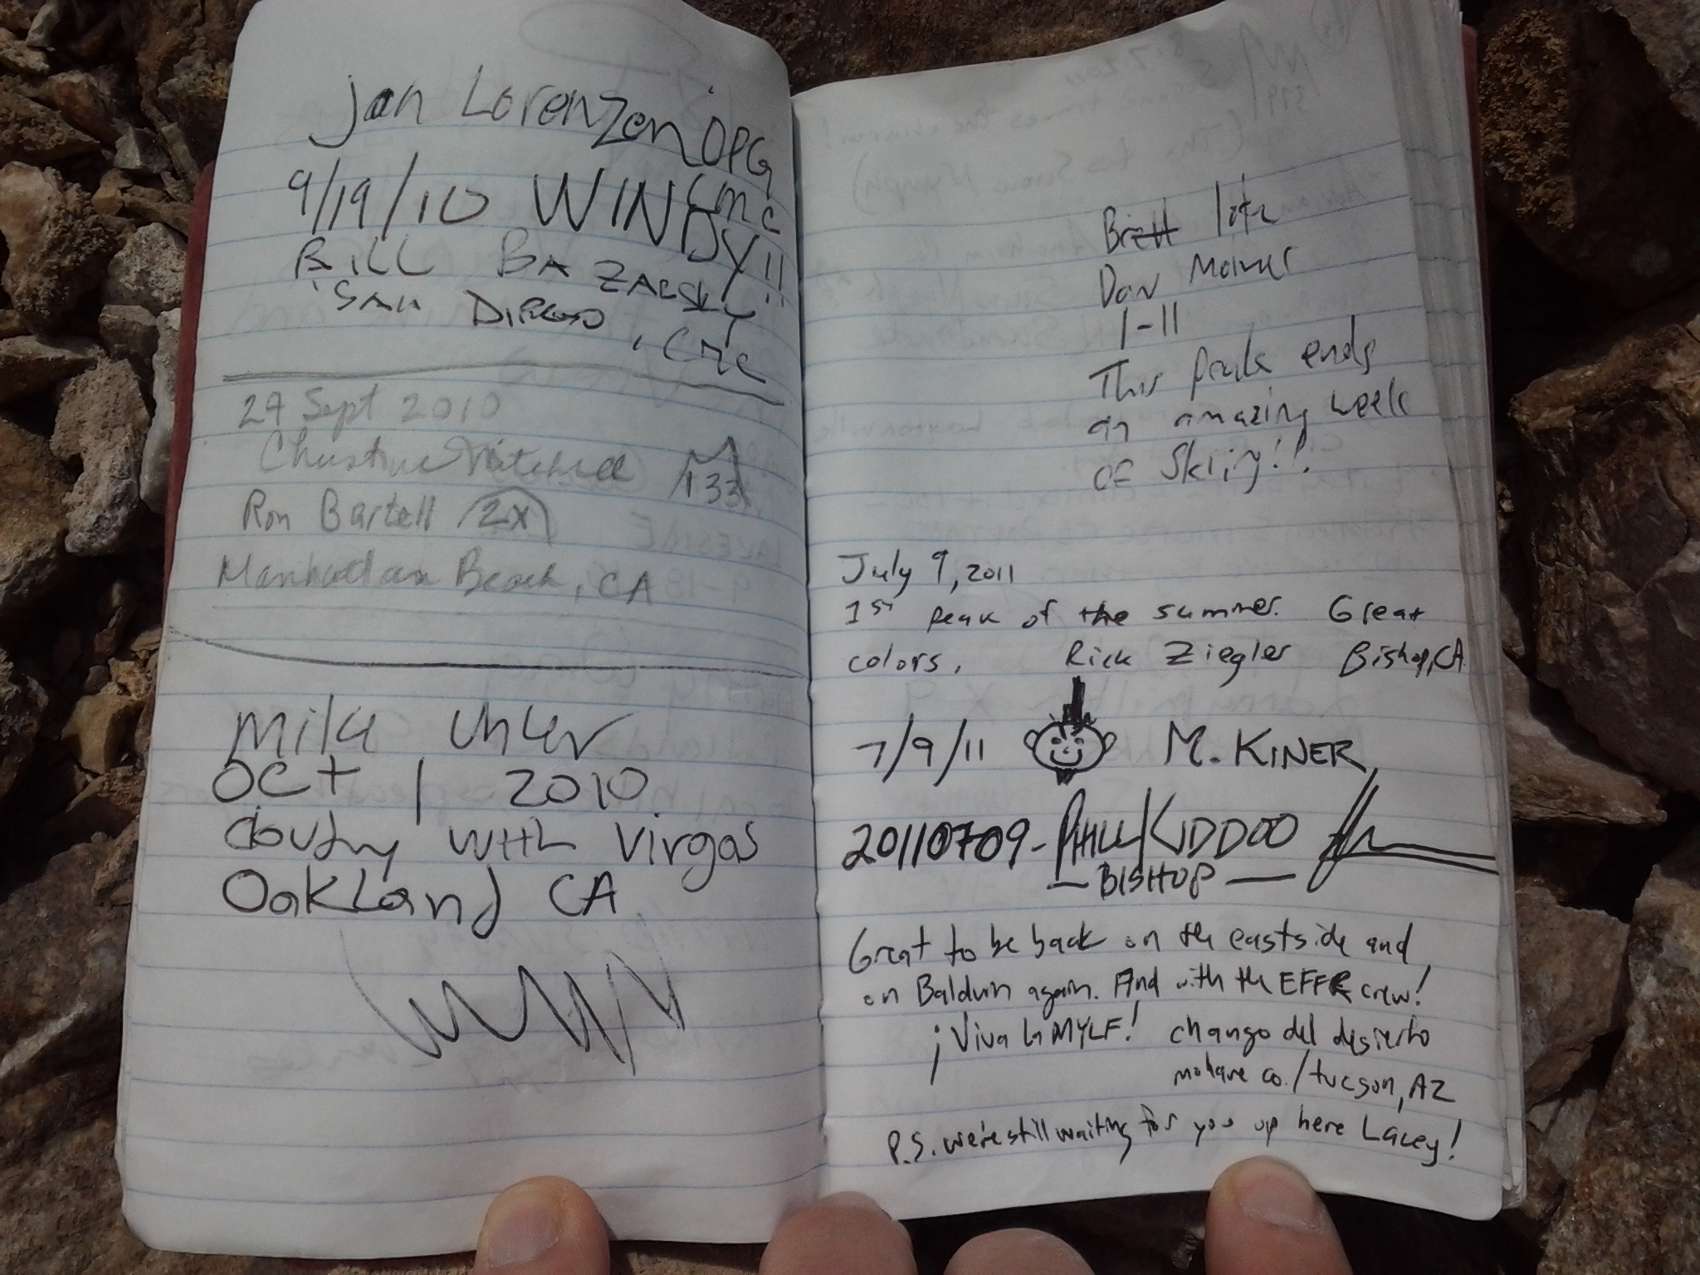 Jan Lorenzen OPG
CMC
9/19/10 WINDY!!
BILL BAZALSKY
SAN DIEGO, CMC
29 Sept 2010
Christine Mitchell 133
Ron Bartell 2X
Manhattan Beach, CA
Mike Uhler
OCT 1 2010
cloudy with Virgas
Oakland CA
Brett
Dan
1-11
This peak ends
an amazing week
of Skiing!!
July 9, 2011
1st peak of the summer. Great
colors. Rick Ziegler Bishop, CA
7/9/11 M. KINER
20110709 - PHILL KIDDOO
— BISHOP —
Great to be back on the eastside and
on Baldwin again. And with the EFFR crew!
¡Viva la MYLF! chango del desierto
mohave co./tucson, AZ
P.S. we're still waiting for you up here Lacey!